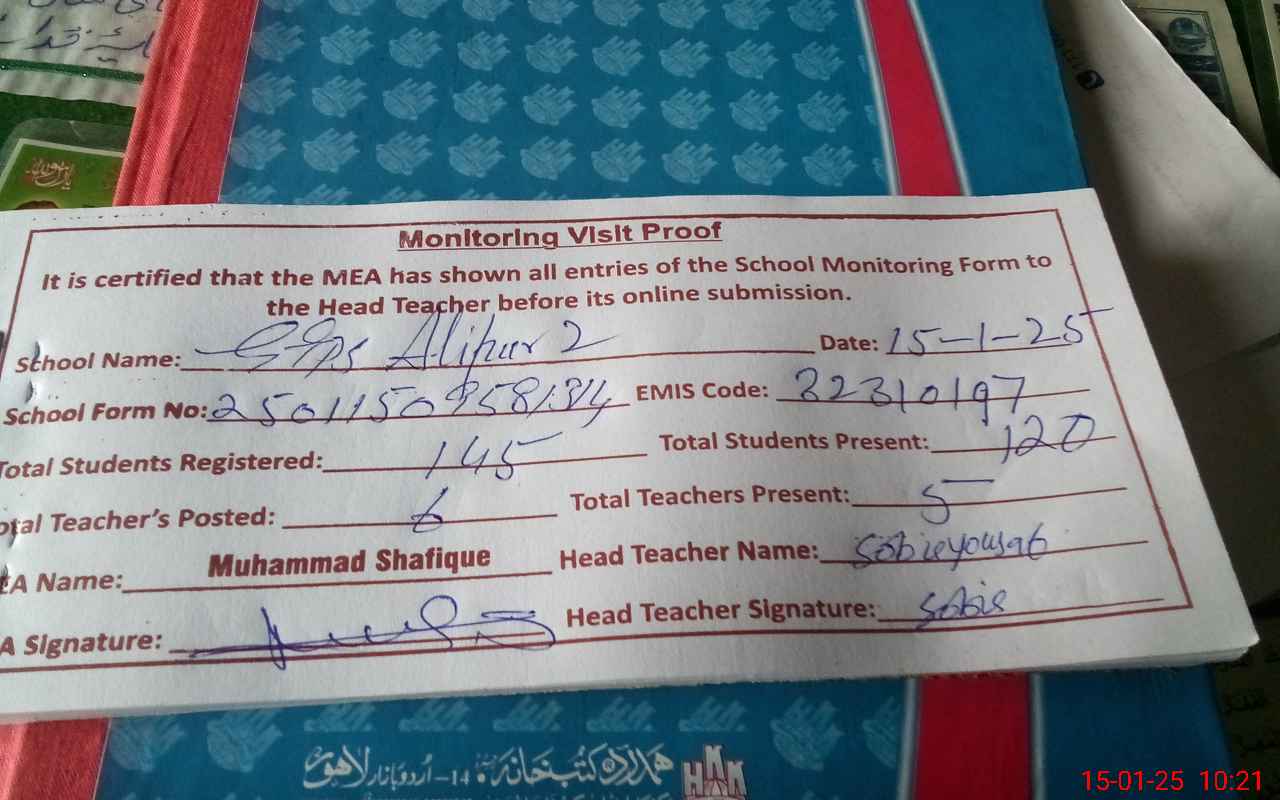 Monitoring Visit Proof
It is certified that the MEA has shown all entries of the School Monitoring Form to
the Head Teacher before its online submission.
School Name: GGPS Alipur 2 Date: 15-1-25
School Form No: EMIS Code: 32310197
Total Students Registered: 145 Total Students Present: 120
otal Teacher's Posted: 6 Total Teachers Present: 5
EA Name: Muhammad Shafique Head Teacher Name: Sobieyousab
A Signature: Head Teacher Signature: Sobie
ہمدرد کتب خانہ 14-اردو بازار لاہور
HKK
15-01-25 10:21